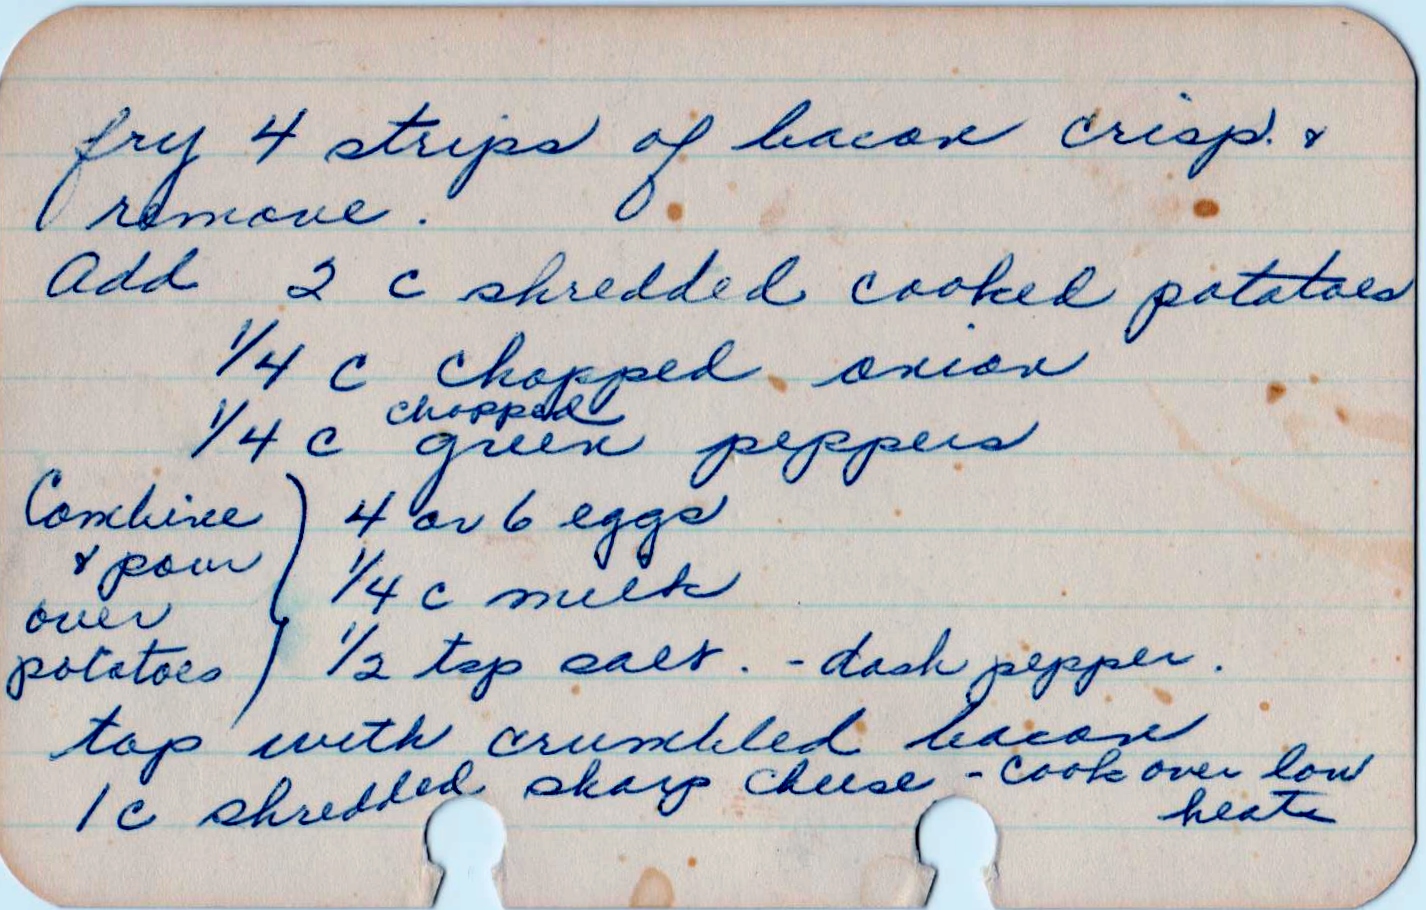 fry 4 strips of bacon crisp. &
remove.
Add 2 c shredded cooked potatoes
1/4 c chopped onion
1/4 c chopped green peppers
Combine
& pour
over
potatoes
4 or 6 eggs
1/4 c milk
1/2 tsp salt. - dash pepper.
top with crumbled bacon
1 c shredded sharp cheese - cook over low
heat